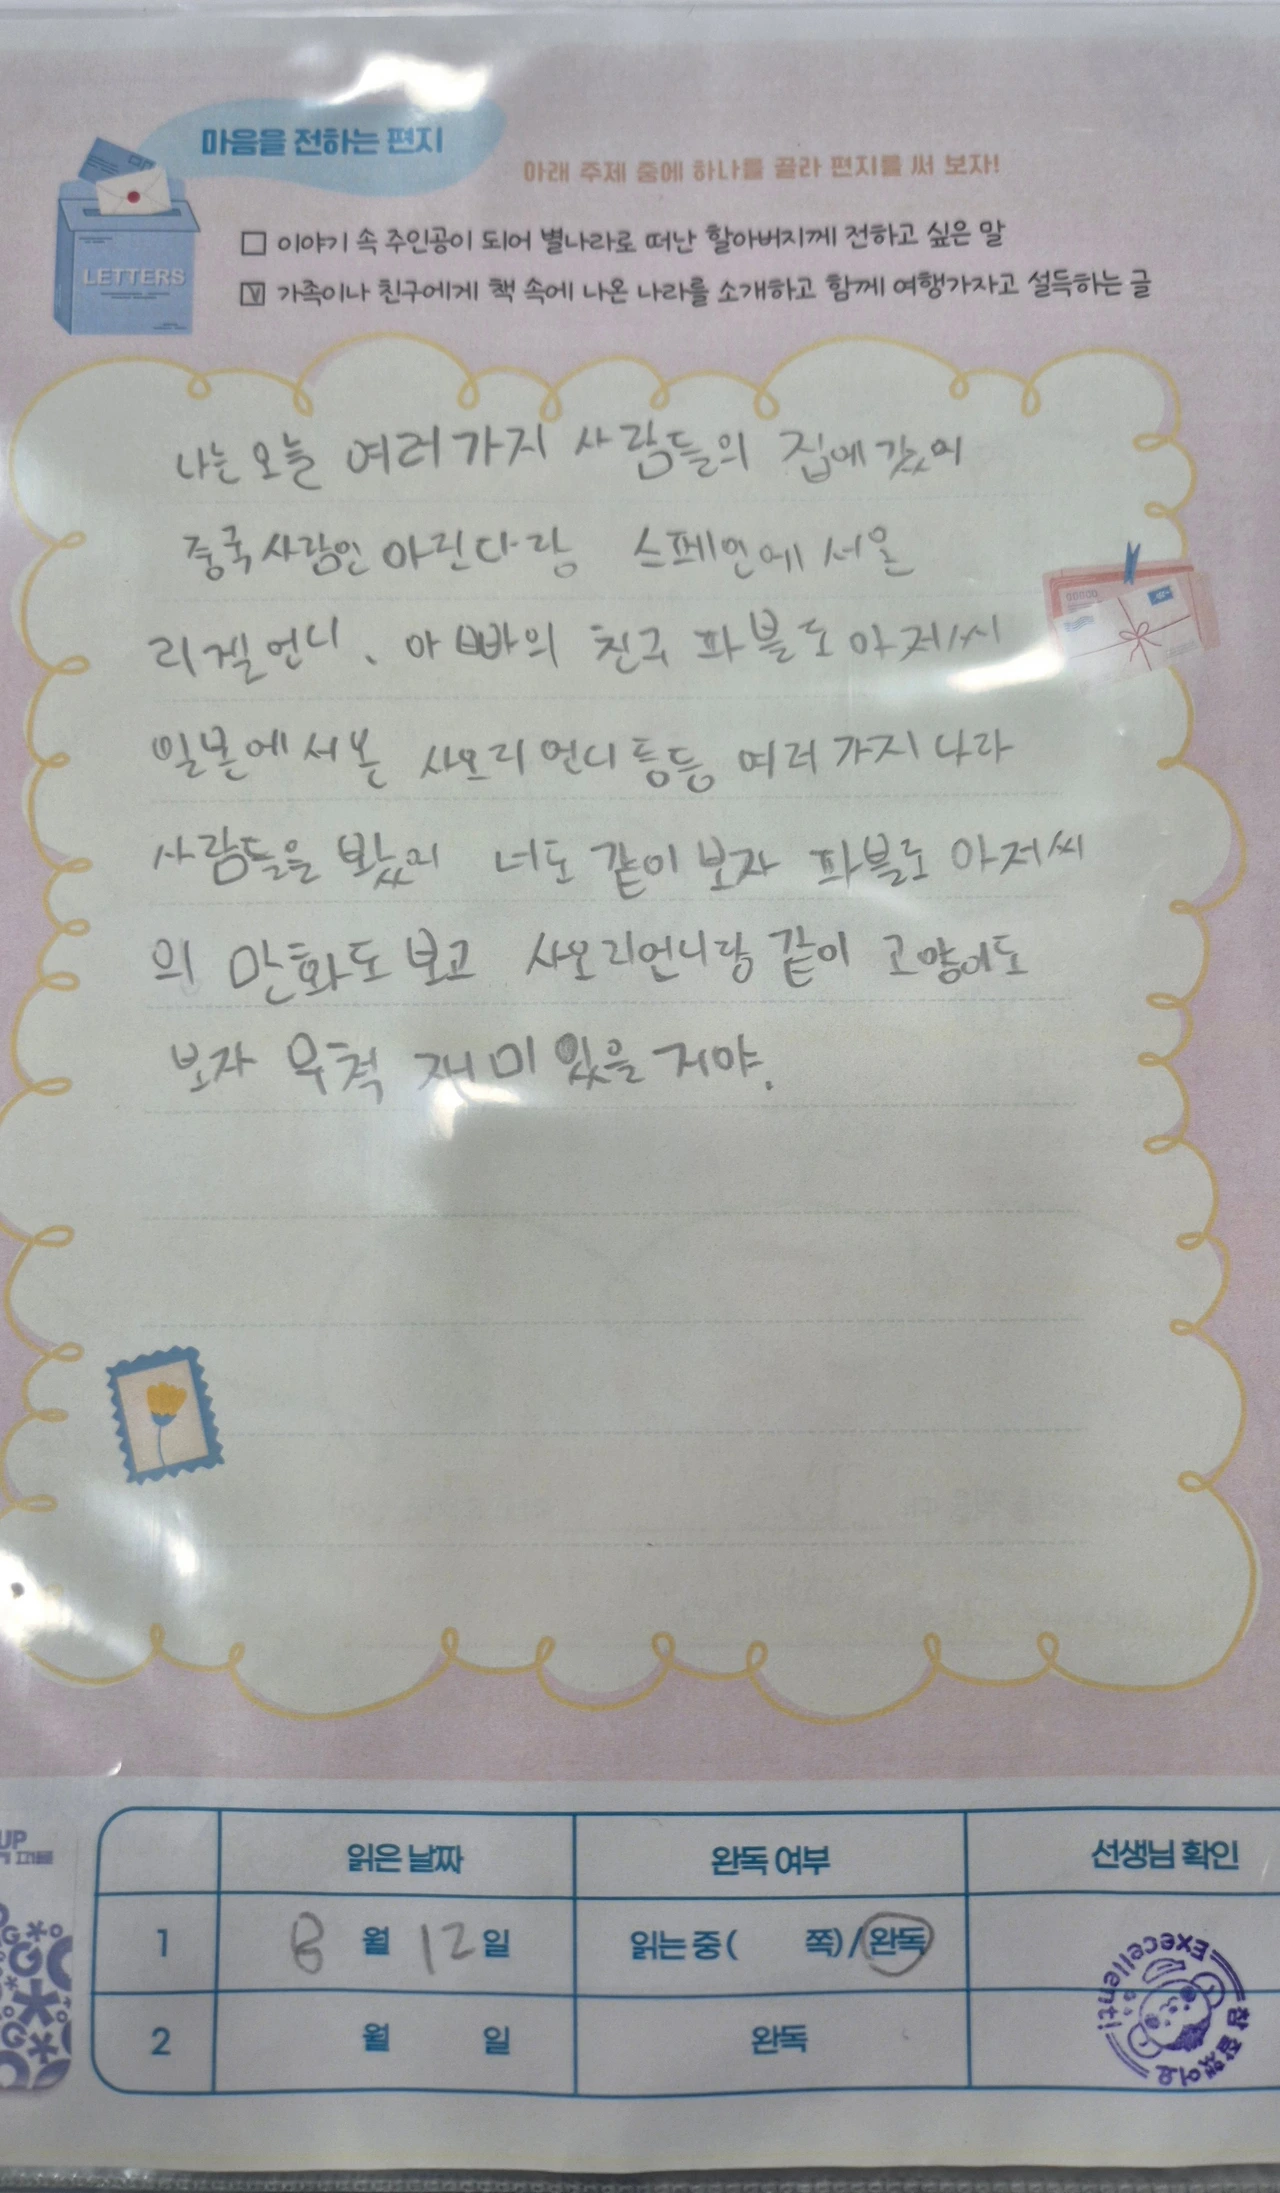 마음을 전하는 편지
아래 주제 중에 하나를 골라 편지를 써 보자!
LETTERS
□ 이야기 속 주인공이 되어 별나라로 떠난 할아버지께 전하고 싶은 말
☑ 가족이나 친구에게 책 속에 나온 나라를 소개하고 함께 여행가자고 설득하는 글
나는 오늘 여러가지 사람들의 집에 갔어
중국사람인 아린다랑 스페인에서온
리겔언니, 아빠의 친구 파블로 아저씨
일본에서본 사오리언니 등등 여러가지 나라
사람들을 봤어 너도 같이 보자 파블로 아저씨
의 만화도 보고 사오리언니랑 같이 고양이도
보자 무척 재미있을 거야.
읽은 날짜 완독 여부 선생님 확인
1 8 월 12 일 읽는 중( 쪽)/완독
2 월 일 완독
Execellent!
참 잘했어요
UP